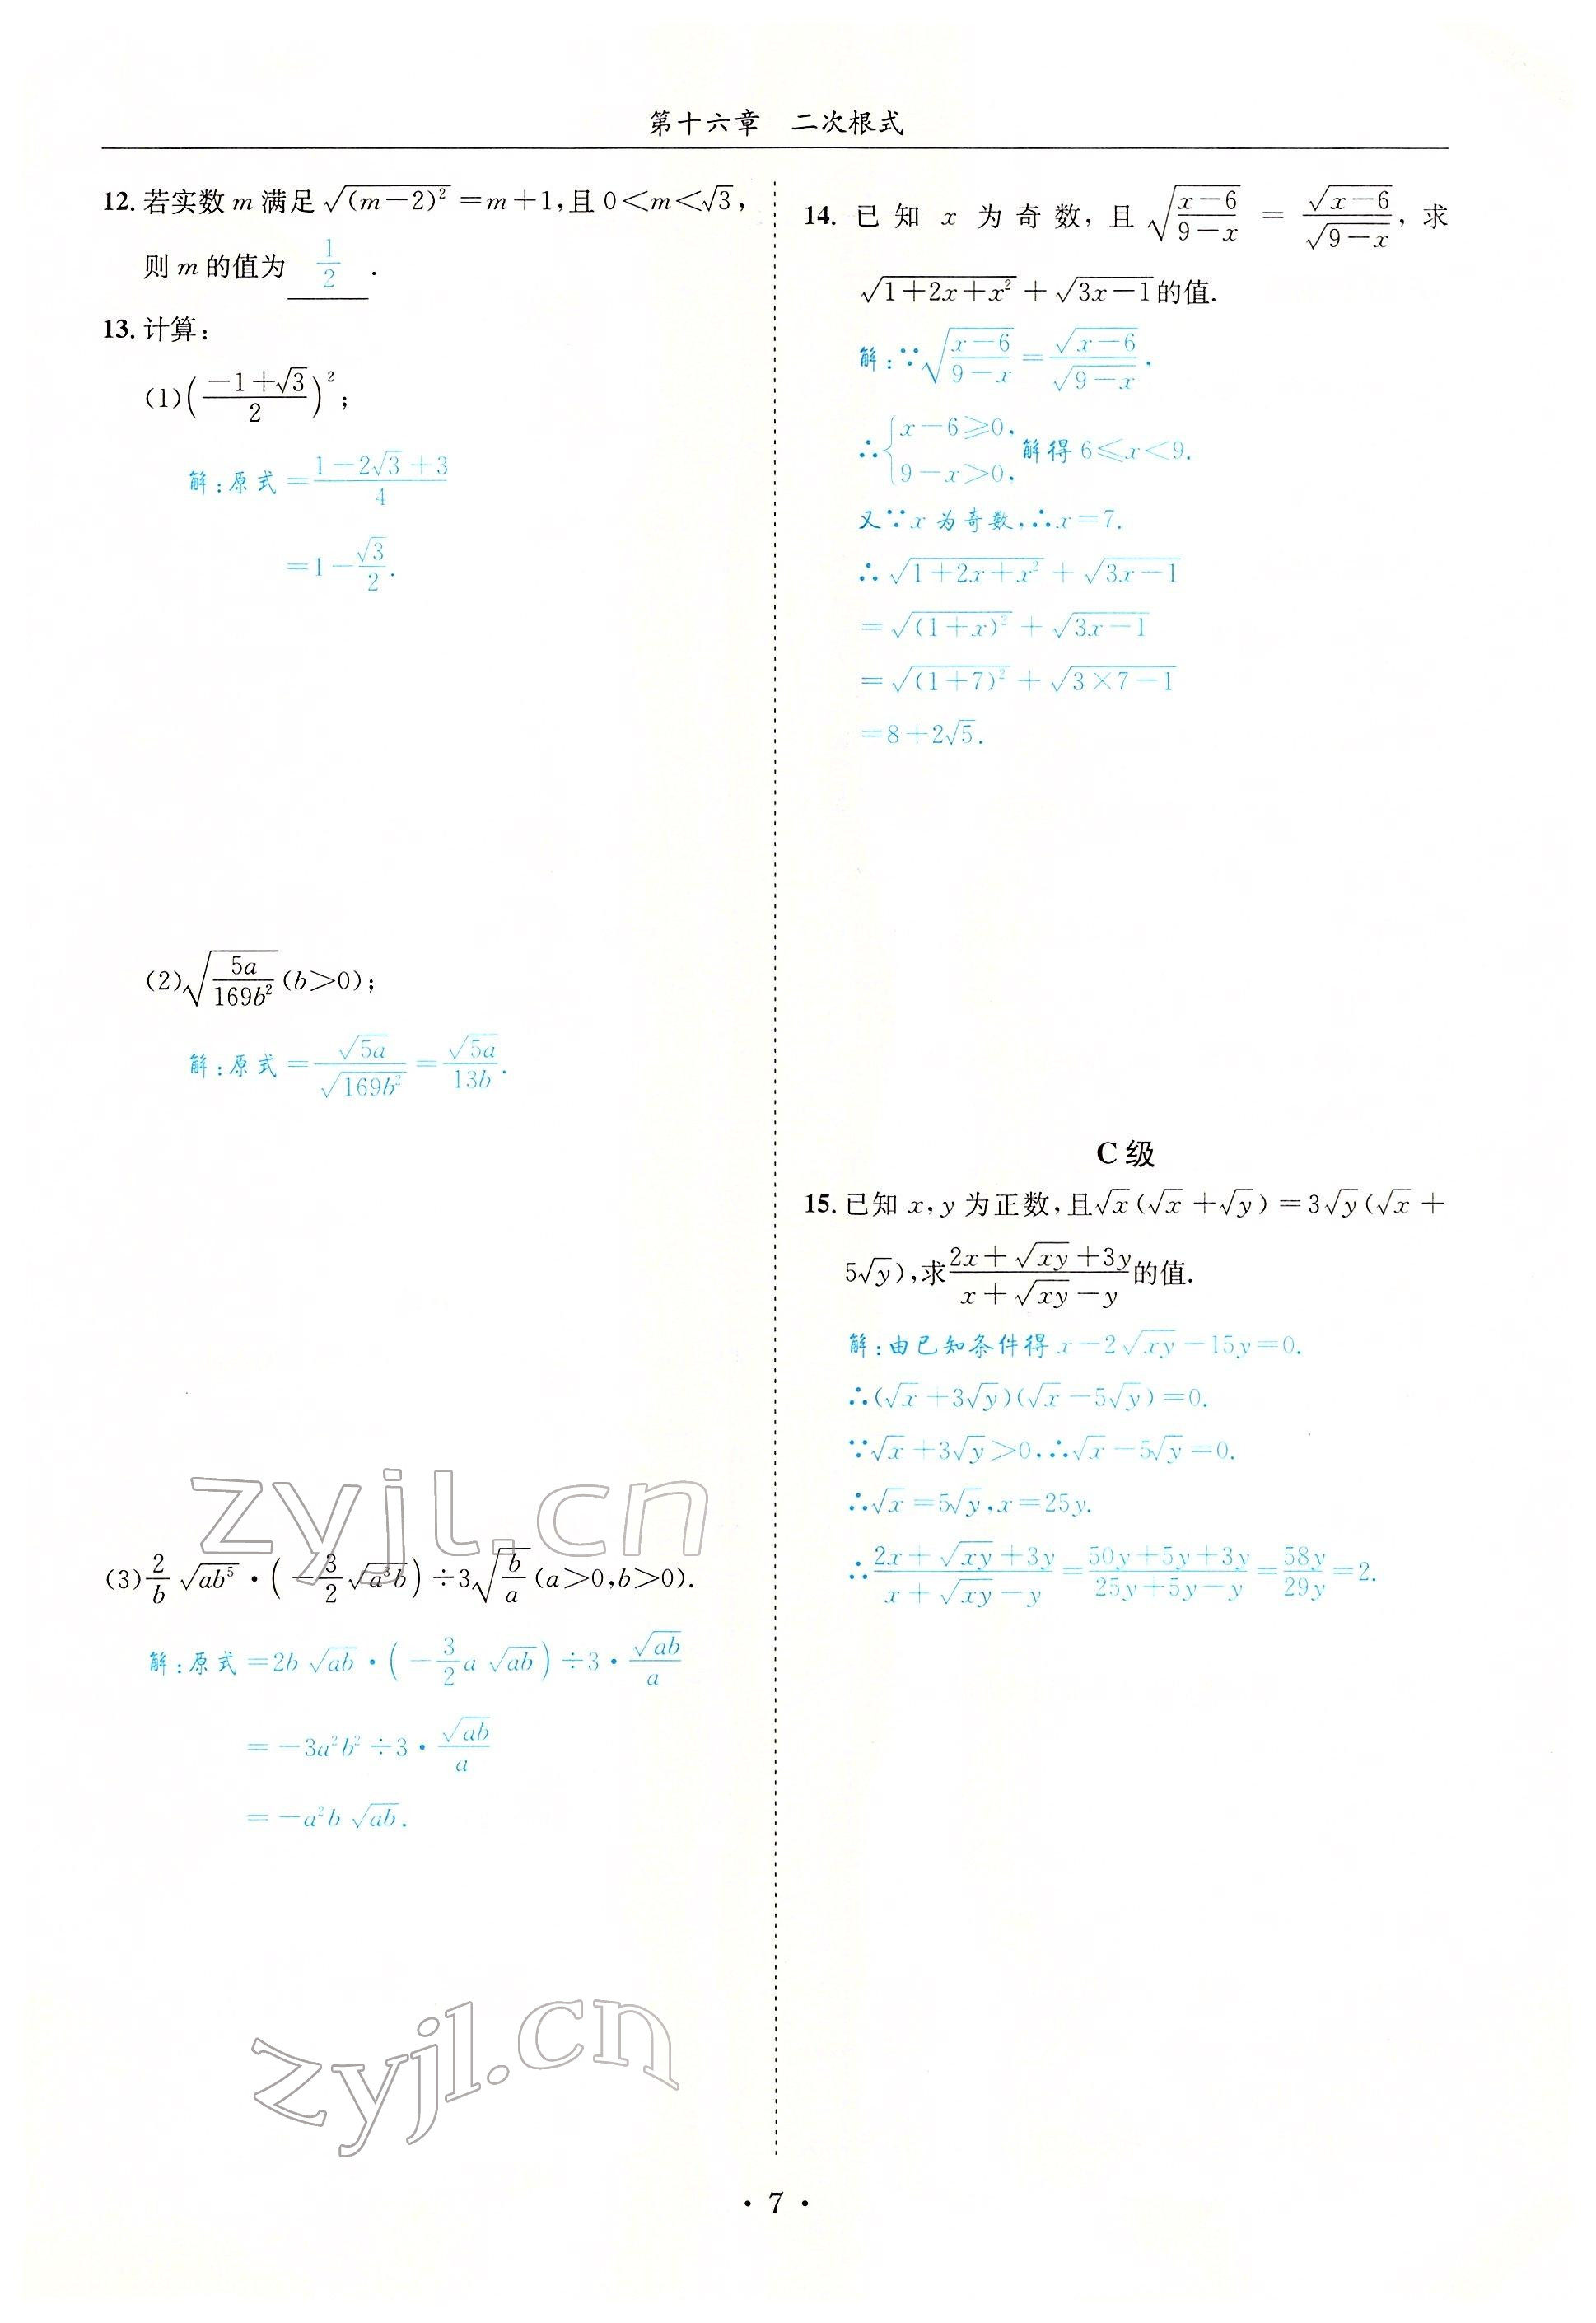 第十六章　二次根式
12. 若实数 m 满足 √((m－2)²) ＝m＋1,且 0＜m＜√3,
则 m 的值为 1/2 .
13. 计算:
(1)((－1＋√3)/2)²;
解:原式＝(1－2√3＋3)/4
＝1－√3/2.
(2)√(5a/(169b²))(b＞0);
解:原式＝√(5a)/√(169b²)＝√(5a)/(13b).
zyjl.cn
(3)2/b √(ab⁵)·(－3/2 √(a³b))÷3√(b/a)(a＞0,b＞0).
解:原式＝2b√(ab)·(－3/2 a√(ab))÷3·√(ab)/a
＝－3a²b²÷3·√(ab)/a
＝－a²b√(ab).
zyjl.cn
14. 已知 x 为奇数,且√((x－6)/(9－x))＝√(x－6)/√(9－x),求
√(1＋2x＋x²)＋√(3x－1)的值.
解:∵√((x－6)/(9－x))＝√(x－6)/√(9－x).
∴{x－6≥0, 9－x＞0, 解得 6≤x＜9.
又∵x 为奇数,∴x＝7.
∴√(1＋2x＋x²)＋√(3x－1)
＝√((1＋x)²)＋√(3x－1)
＝√((1＋7)²)＋√(3×7－1)
＝8＋2√5.
C 级
15. 已知 x,y 为正数,且√x(√x＋√y)＝3√y(√x＋
5√y),求(2x＋√(xy)＋3y)/(x＋√(xy)－y)的值.
解:由已知条件得 x－2√(xy)－15y＝0.
∴(√x＋3√y)(√x－5√y)＝0.
∵√x＋3√y＞0,∴√x－5√y＝0.
∴√x＝5√y,x＝25y.
∴(2x＋√(xy)＋3y)/(x＋√(xy)－y)＝(50y＋5y＋3y)/(25y＋5y－y)＝58y/29y＝2.
· 7 ·